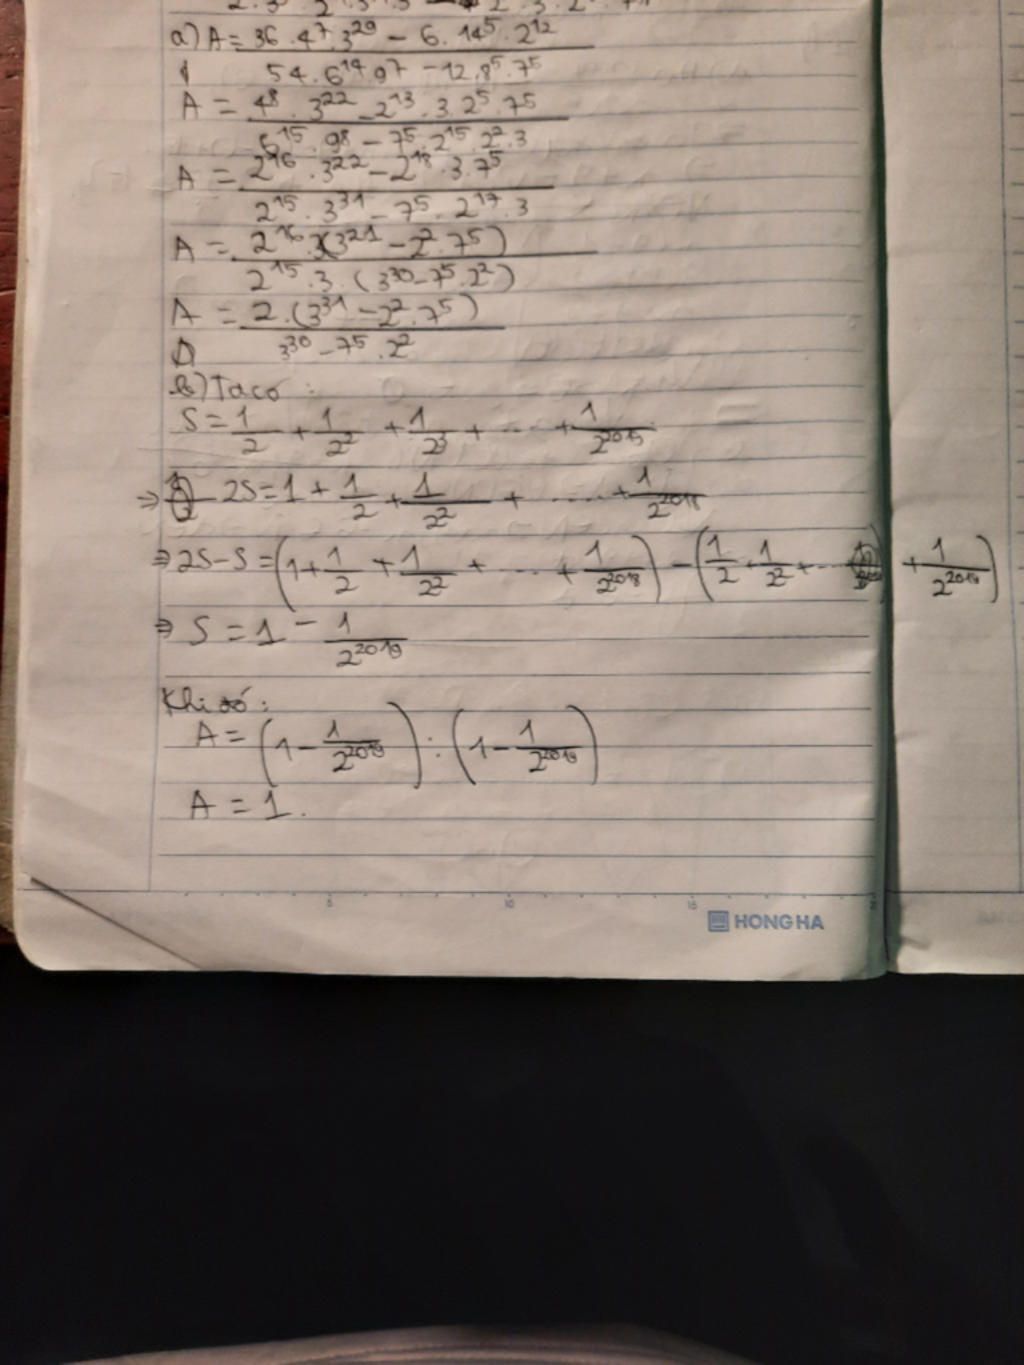 a) A = \frac{36 . 4^7 . 3^{29} - 6 . 14^5 . 2^{12}}{54 . 6^{14} . 9^7 - 12 . 8^5 . 7^5}
A = \frac{4^8 . 3^{22} - 2^{13} . 3 . 2^5 . 7^5}{6^{15} . 9^8 - 7^5 . 2^{15} . 2^2 . 3}
A = \frac{2^{16} . 3^{22} - 2^{18} . 3 . 7^5}{2^{15} . 3^{31} - 7^5 . 2^{17} . 3}
A = \frac{2^{16} . 3(3^{21} - 2^2 . 7^5)}{2^{15} . 3 . (3^{30} - 7^5 . 2^2)}
A = \frac{2 . (3^{31} - 2^2 . 7^5)}{3^{30} - 7^5 . 2^2}
b) Ta có :
S = \frac{1}{2} + \frac{1}{2^2} + \frac{1}{2^3} + .... + \frac{1}{2^{2019}}
⇒ 2S = 1 + \frac{1}{2} + \frac{1}{2^2} + ..... + \frac{1}{2^{2018}}
⇒ 2S - S = (1 + \frac{1}{2} + \frac{1}{2^2} + .... + \frac{1}{2^{2018}}) - (\frac{1}{2} + \frac{1}{2^2} + ... + \frac{1}{2^{2019}})
⇒ S = 1 - \frac{1}{2^{2019}}
Khi đó :
A = (1 - \frac{1}{2^{2019}}) : (1 - \frac{1}{2^{2019}})
A = 1.
HONG HA